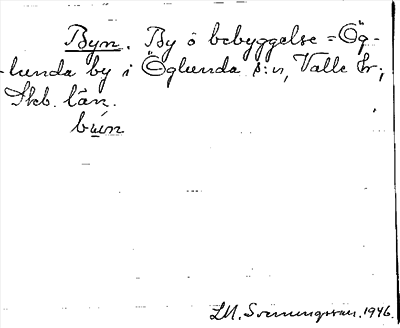 Byn. By o bebyggelse = Ög-
lunda by i Öglunda s:n, Valle hr,
Skb. län.
býn
I.M. Svenungsson. 1946.